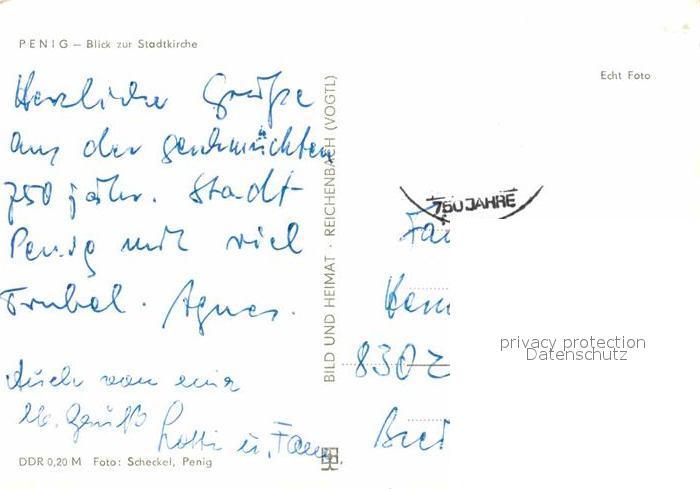 PENIG — Blick zur Stadtkirche
Echt Foto
Herzliche Grüße
aus der geschmückten
750 jähr. Stadt-
Penig mit viel
Trubel. Agnes.
Auch von mir
Lotti u. Fam.
BILD UND HEIMAT · REICHENBACH (VOGTL)
750 JAHRE
Fam
830
privacy protection
Datenschutz
DDR 0,20 M Foto: Scheckel, Penig